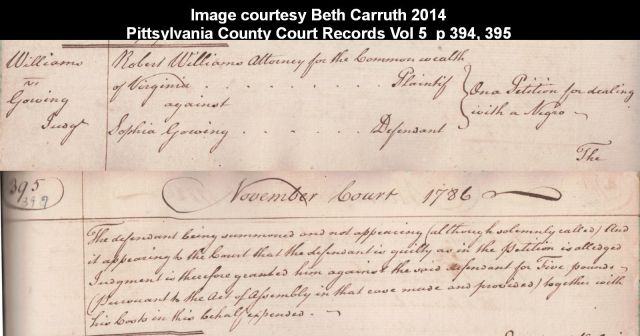 Image courtesy Beth Carruth 2014
Pittsylvania County Court Records Vol 5 p 394, 395
Williams
vs
Gowing
Judgt
Robert Williams Attorney for the Common wealth
of Virginia . . . . . . Plaintif
against
Sophia Gowing . . . . . Defendant
On a Petition for dealing
with a Negro ~
The
395
399
November Court 1786
The defendant being summoned and not appearing (although solemnly called) And
it appearing to the Court that the defendant is guilty as in the Petition is alledged
Judgment is therefore granted him against the said defendant for Five pounds
(Pursuant to the Act of Assembly in that case made and provided) together with
his Costs in this behalf expended. ~